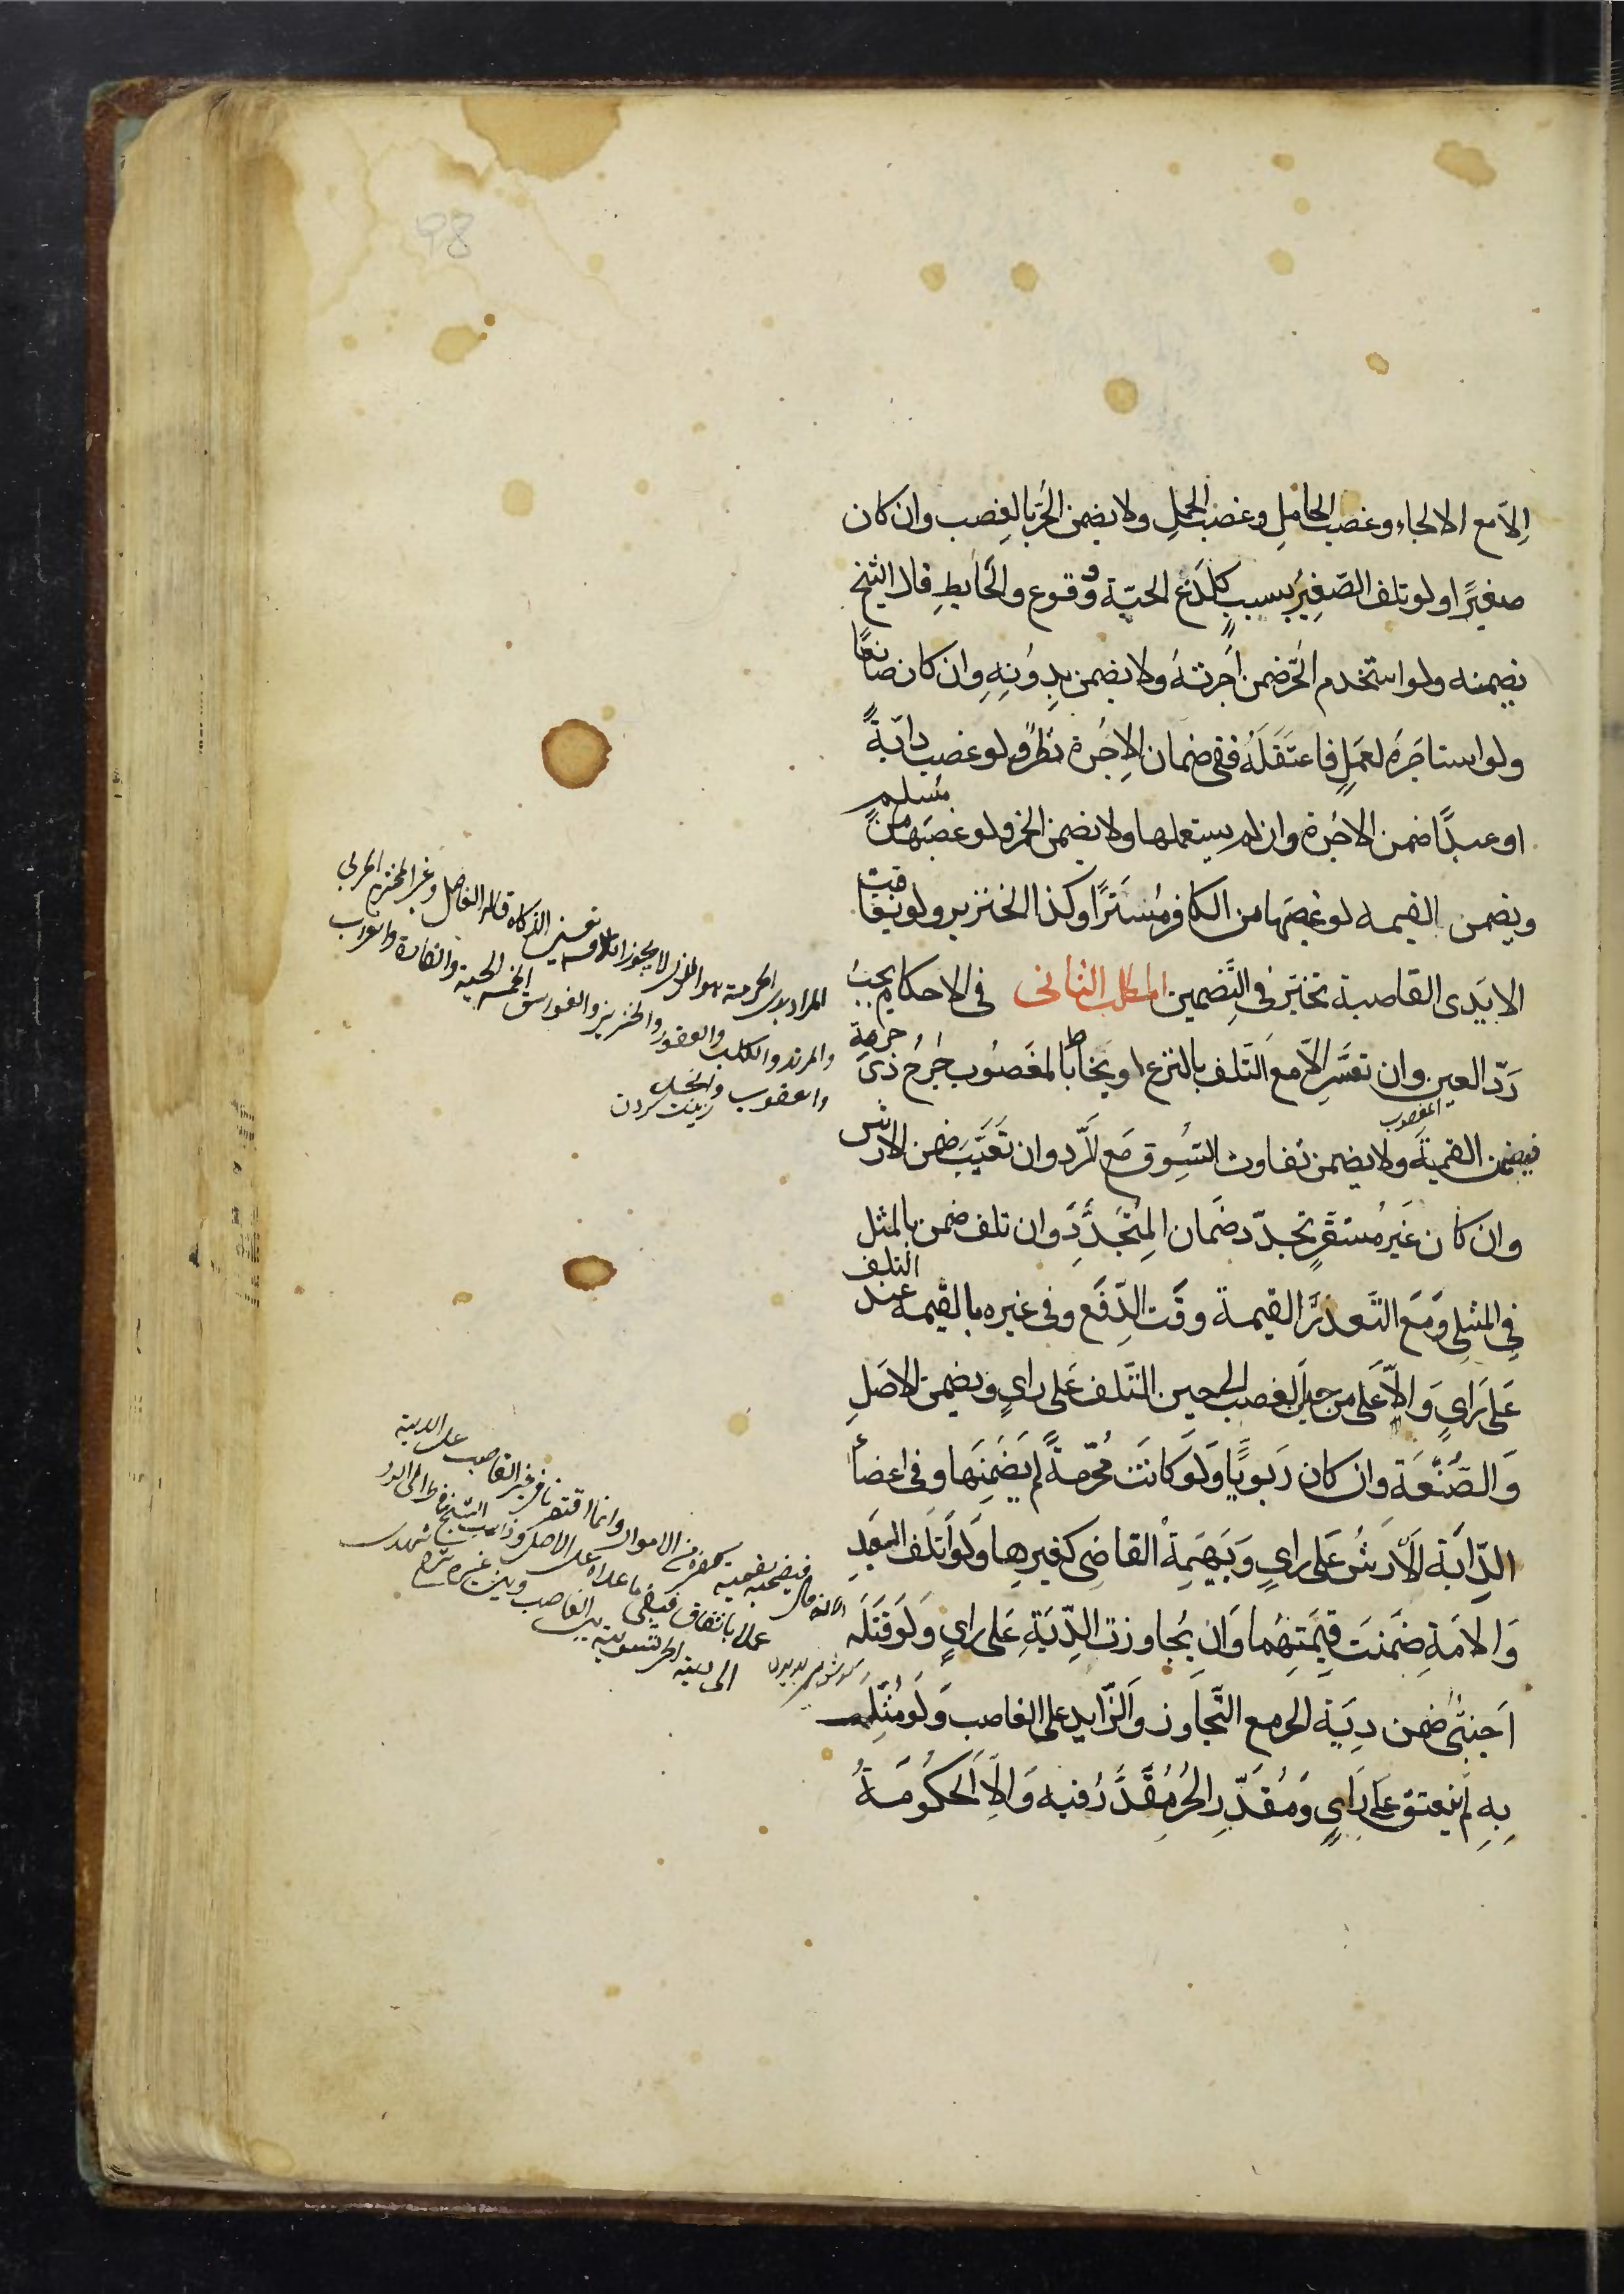 اِلّا مع الالجاء وغصب الحامِلِ وغصب الحملِ ولا يضمن الحُرّ بالغصب وان كان
صغيرًا ولو تلف الصّغِيرُ بسببٍ كلَدغ الحيّة ووقوع والحَايطِ قال الشيخ
يضمنه ولو استخدم الحُرّ ضمن اُجرتهُ ولا يضمن بدِوُنِهِ وان كان صانعًا
ولو استاجَرهُ لعَمَلٍ فاعتَقلَهُ ففى ضمان الاُجرة نَظرٌ ولو غصب دابّةً
او عبدًا ضمن الاجُرة وان لم يستعملها ولا يضمن الخمر ولو غصبَها من مُسلمٍ
ويضمن القيمه لو غصبَها من الكافر مُستَترًا وكذا الخنزير ولو تعاقبت
الايَدى الغاصبة تخيّر فى التّضمين المطلب الثانى فى الاحكام يجبُ
رَدّ العين وان تعسَّر اِلّا مع التّلف بالنزع او يخاط بالمغصُوب جُرحُ ذى حرمةٍ
فيضمن القيمةَ ولا يضمن تفاوت السُوق مَع الرّد وان تَعَيَّبَ ضمن الارش
المغصوب
وان كان غَيرَ مُستقّرٍ تجدّد ضَمان المُتَجَدِّدَ وان تلف ضمن بالمثل
فِى المثلى وَمَع التّعذر القيمة وقَت الدّفَع وفى غيره بالقيمه عند التلف
عَلى رَاىٍ وَالاّ عَلى من حين الغصب الى حين التّلف عَلى راىٍ ويضمن الاصَلِ
وَالصّنُعَة وَان كان رَبويًا وَلَو كانَت مُحرّمةً لم يَضمنها وفى اعضاء
الدّابَة الأرشُ عَلى راىٍ وَبَهيَمةِ القاضِى كغيرِها وَلَو اَتلف العبَدِ
وَالامَةِ ضَمنَت قيِمَتِهُما وَان يُجاوزت الدِّيَةِ عَلى راىٍ وَلَو قتَلَه
اَجنبّى ضمن دِيَة الحر مع التّجاوز وَالزّايد على الغاصب وَلَو مثّل
بِهِ لم ينعتق عَلى راىٍ وَمُقدّرِ الحُر مُقَدَّرُ فيه وَالاّ الحَكُومَةُ
المراد بذى الحرمة هو الذى لا يجوز اتلافه بغير الذكاة قاله الفاضل وغير المحترم الحربى
والمرتد والكلب العقور والخنزير والفواسق الخمسه الحية والفارة والغراب
والعقرب
الى دية الحر لتسوية بين الغاصب وبين غيره